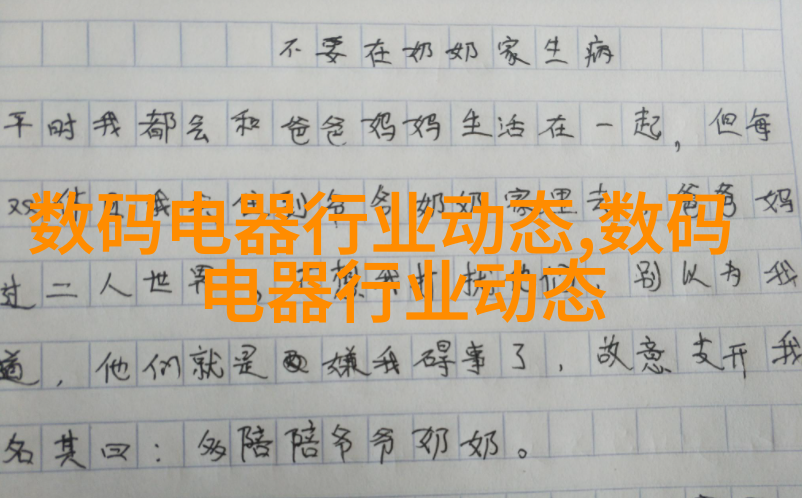 不要在奶奶家生病
平时我都会和爸爸妈妈生活在一起，但每
爷爷奶奶家里去 爸爸妈
数码电器行业动态,数码
电器行业动态
过二人世界， 别以为我
道，他们就是嫌我碍事了，故意支开我
名其曰：多陪陪爷爷奶奶。